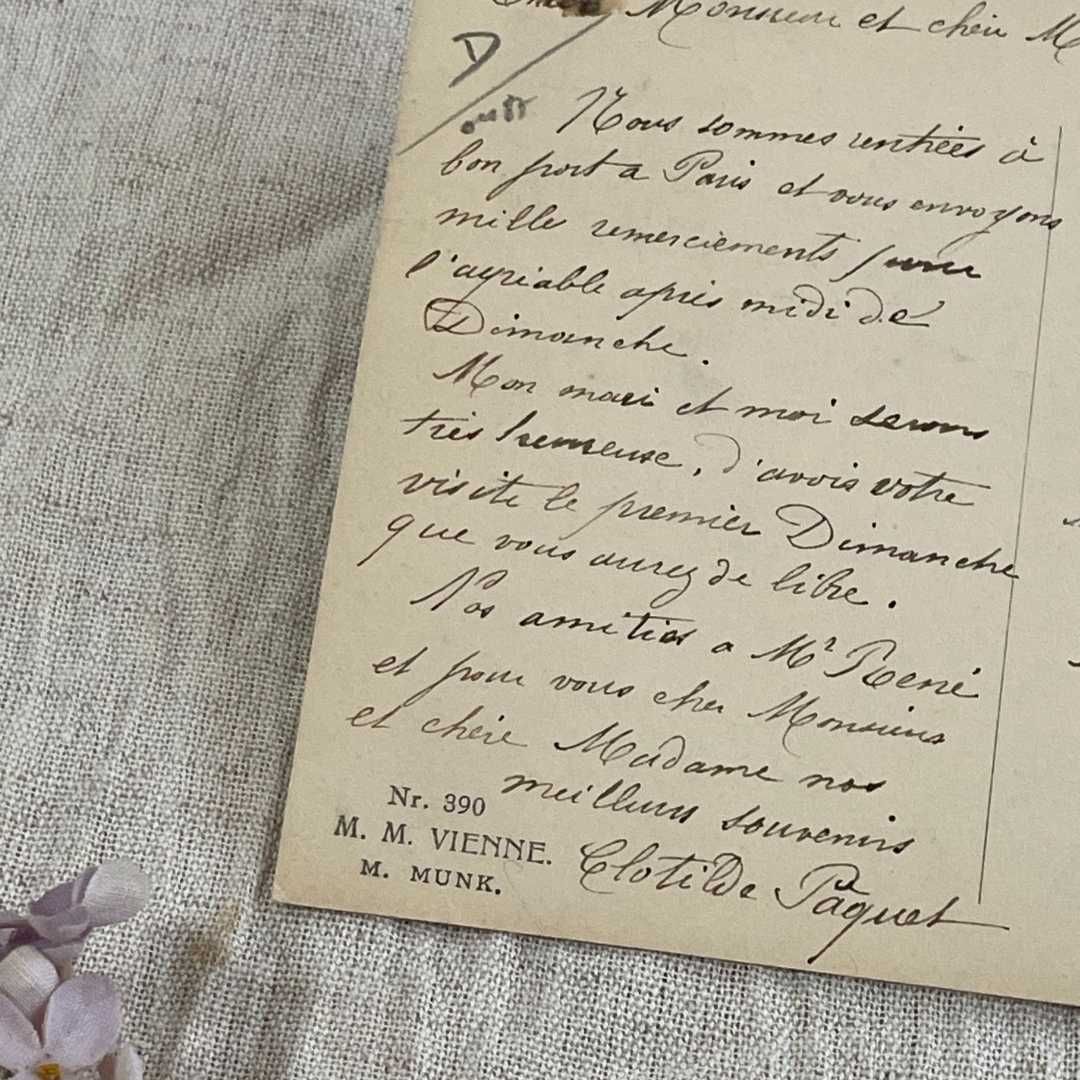 Cher Monsieur et chère M
D
Nous sommes rentrées à
bon port a Paris et vous envoyons
mille remerciements pour
l'agréable après midi de
Dimanche.
Mon mari et moi serons
très heureuse, d'avoir votre
visite le premier Dimanche
que vous aurez de libre.
Nos amitiés a Mr René
et pour vous cher Monsieur
et chère Madame nos
meilleurs souvenirs
Clotilde Paquet
Nr. 390
M. M. VIENNE.
M. MUNK.